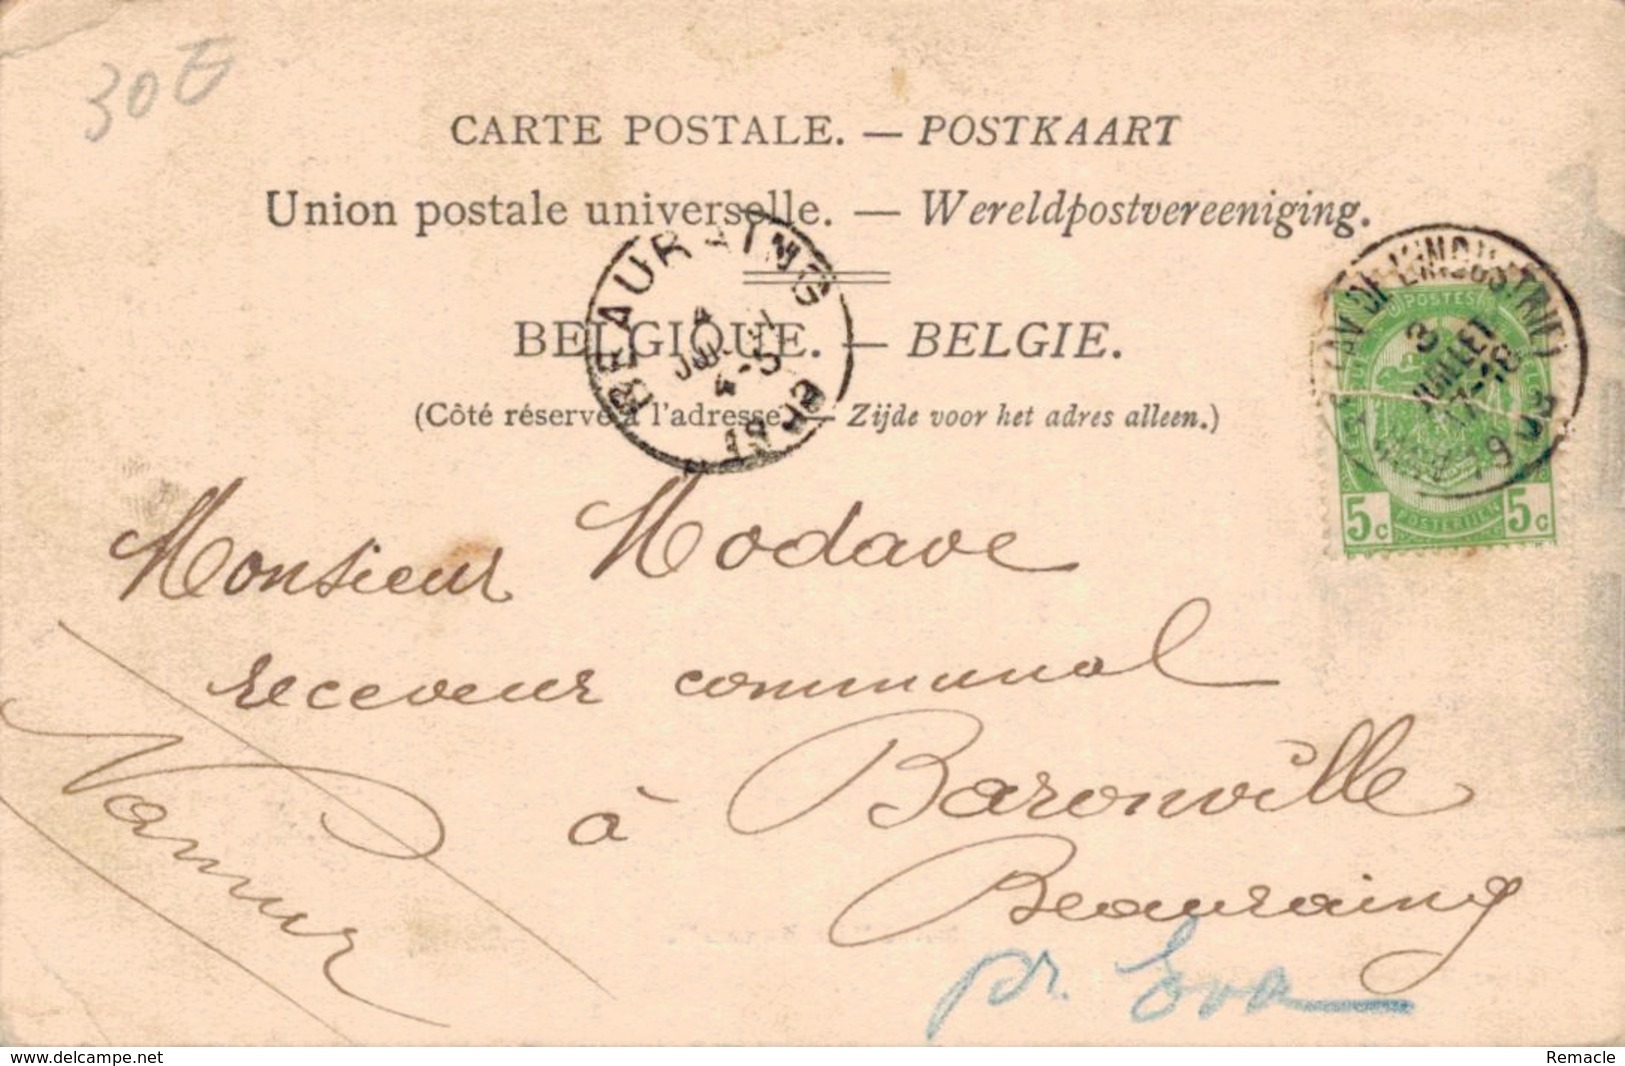 30 E
CARTE POSTALE. — POSTKAART
Union postale universelle. — Wereldpostvereeniging.
BELGIQUE. — BELGIE.
(Côté réservé à l'adresse.) — Zijde voor het adres alleen.)
BEAURAING
4
JUIL
4-5
19
(AV DE L'INDUSTRIE)
3
JUILLET
17-18
19
POSTES
5c
5c
POSTERIJEN
Monsieur Modave
receveur communal
à Baronville
Beauraing
Namur
pr. Eva
www.delcampe.net
Remacle